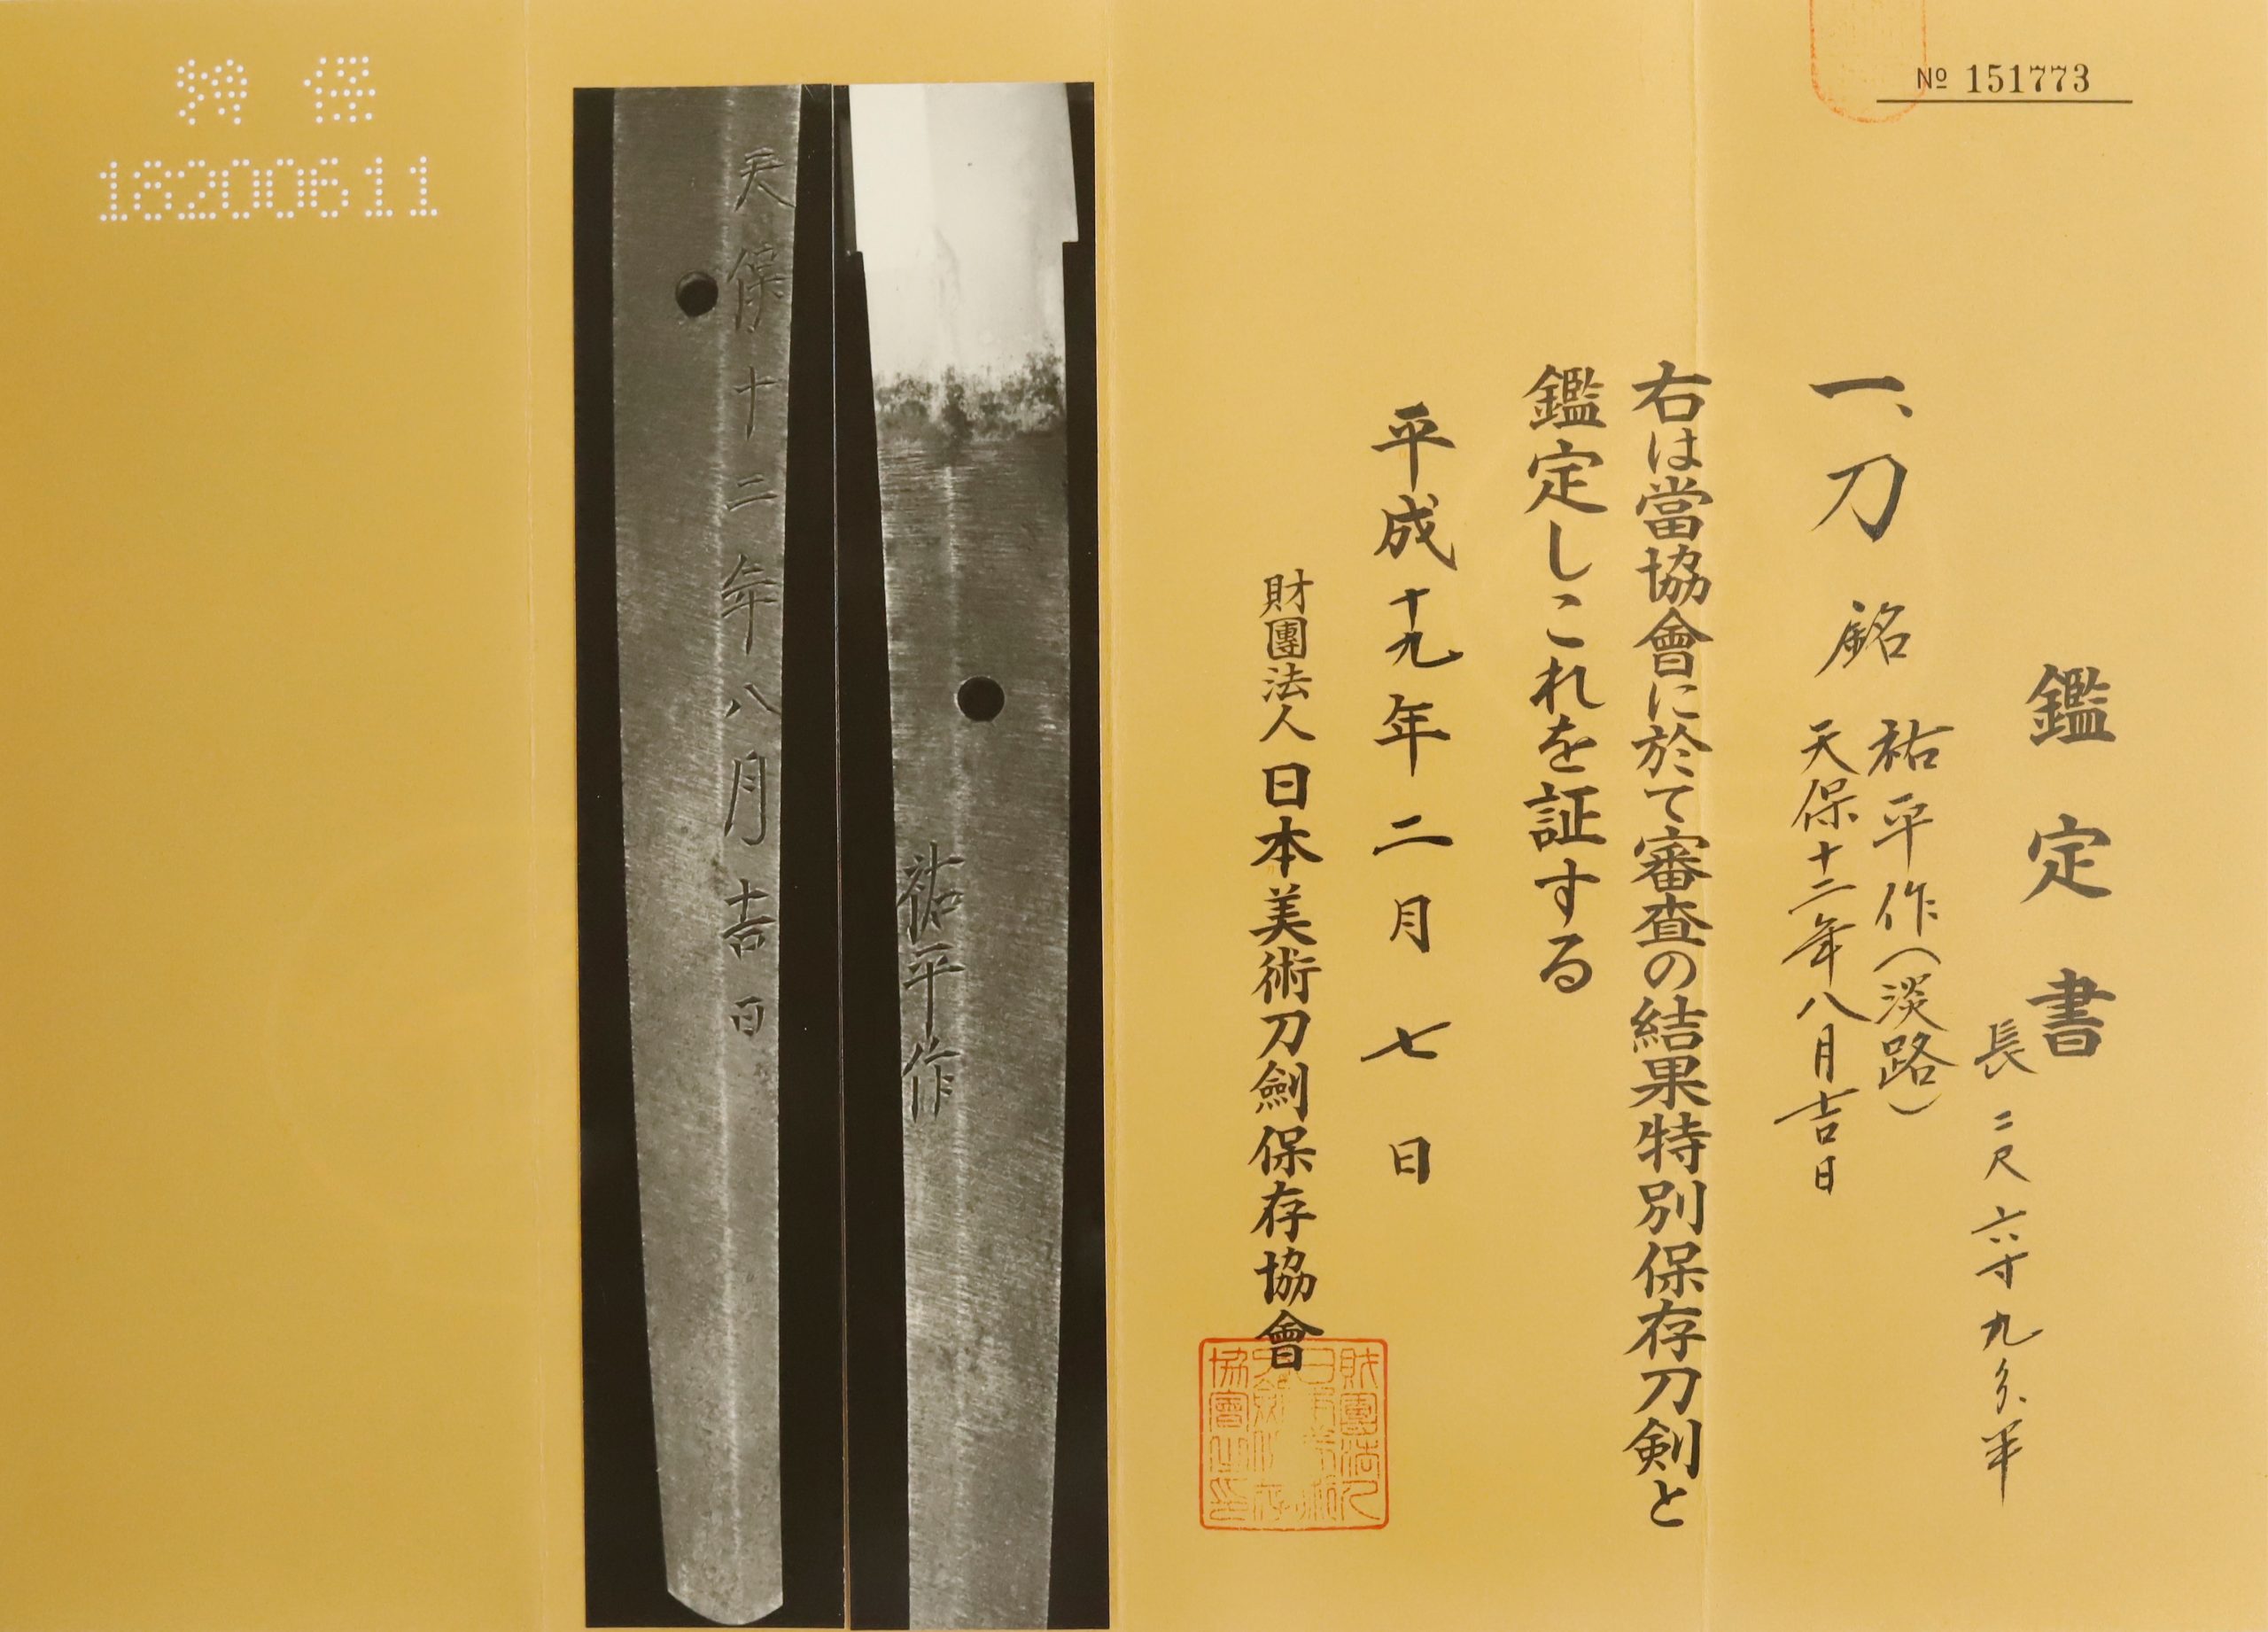 № 151773
鑑定書
長 二尺六寸九分半
一、刀 銘 祐平作(淡路)
天保十二年八月吉日
右は當協會に於て審査の結果特別保存刀剣と
鑑定しこれを証する
平成十九年二月七日
財團法人 日本美術刀劍保存協會
財團法人
日本美術
刀劍保存
協會之印
祐平作
天保十二年八月吉日
特 保
18200611